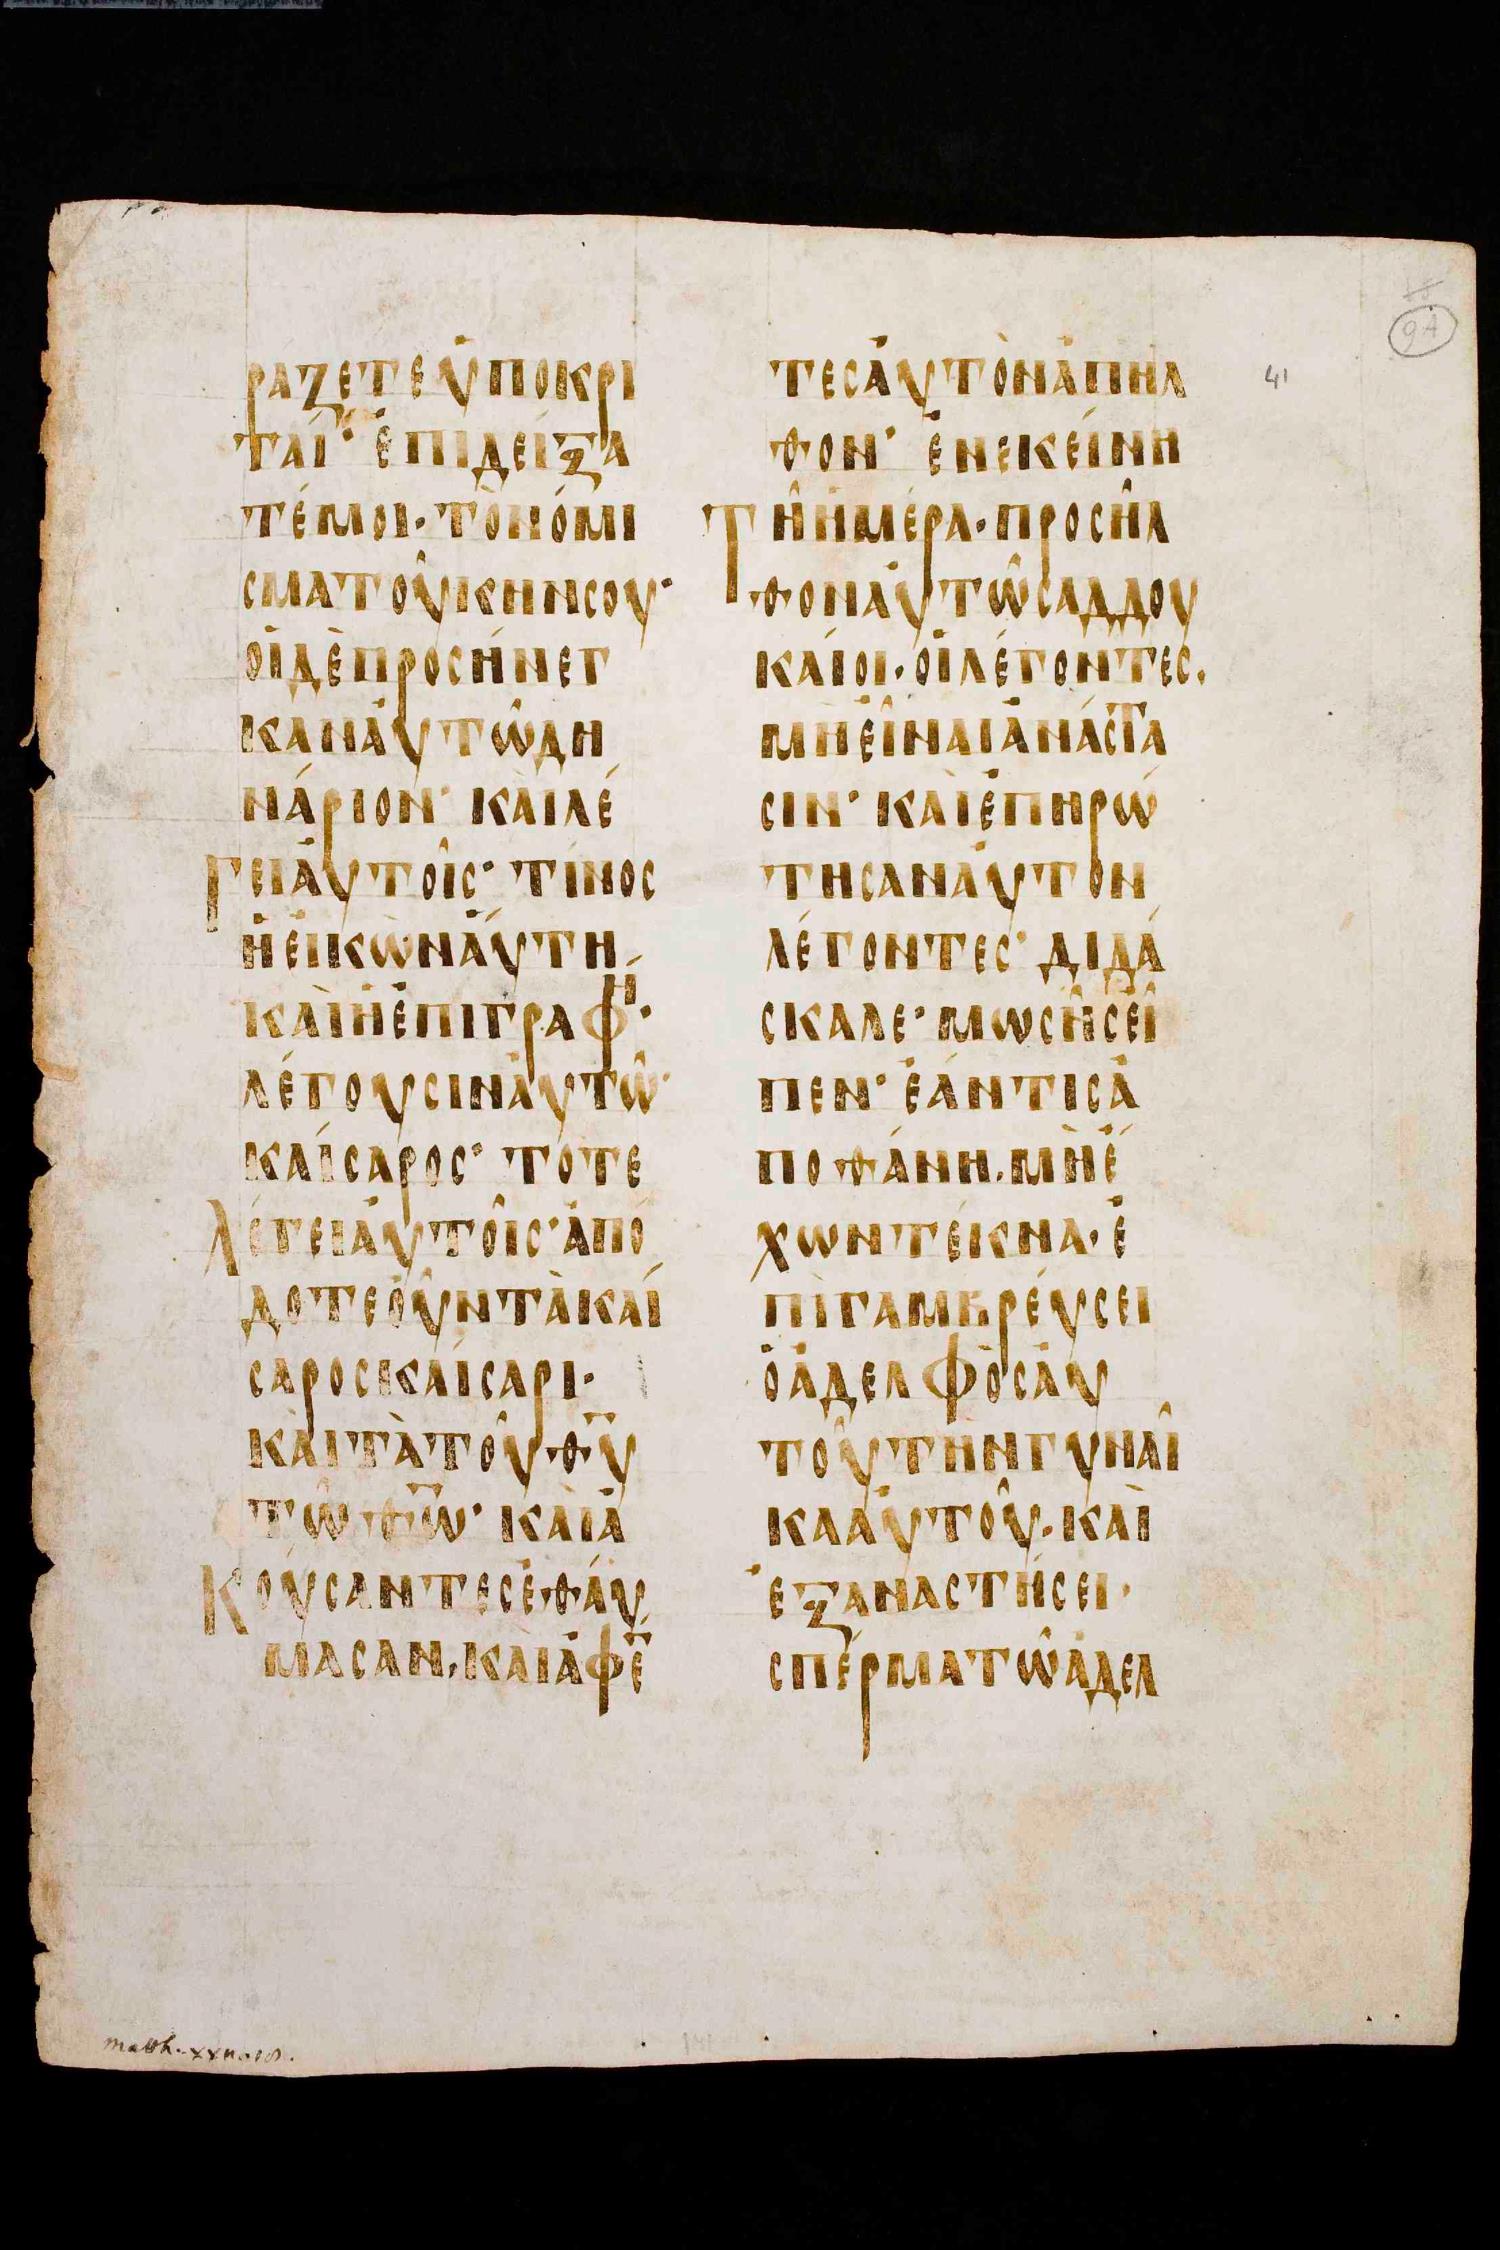 ράζετε ὑποκρι
ταί· ἐπιδείξα
τέ μοι· τὸ νόμι
σμα τοῦ κήνσου·
οἱ δὲ προσήνεγ
καν αὐτῶ δη
νάριον· καὶ λέ
γει αὐτοῖς· τίνος
ἡ εἰκὼν ἅυτη
καὶ ἡ ἐπιγραφή·
λέγουσιν αὐτῶ·
καίσαρος· τότε
λέγει αὐτοῖς· ἀπό
δοτε οὖν τὰ καί
σαρος καίσαρι·
καὶ τὰ τοῦ θ̅υ̅
τῶ θ̅ω̅· καὶ ἀ
κούσαντες ἐθάυ
μασαν, καὶ ἀφέ̅
τες ἀυτὸν ἀπῆλ
θον· ἐν ἐκείνη
τῆ ἡμέρα· προσῆλ
θον ἀυτῶ σαδδου
καίοι· οἱ λέγοντες.
μὴ εἶναι ἀνάστα
σιν· καὶ ἐπηρώ
τησαν ἀυτον
λέγοντες· διδά
σκαλε· μωσῆς εἶ
πεν· ἐάν τις ἀ
ποθάνη. μὴ ἔ
χων τέκνα· ἐ
πιγαμβρέυσει
ὁ ἀδελφὸς ἀυ
τοῦ τὴν γυναῖ
κα ἀυτοῦ. καὶ
ἐξαναστήσει·
σπέρμα τῶ ἀδελ
41
9A
matth. xxii. 18.